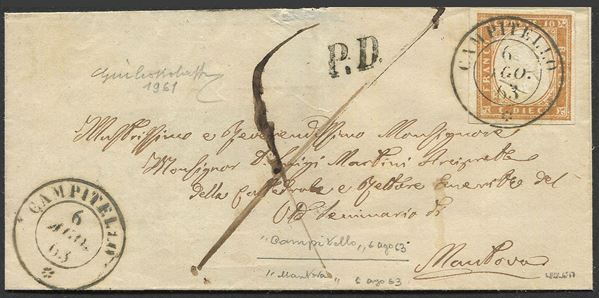 P.D.
CAMPITELLO
6
AGO.
63
1961
Illustrissimo e Reverendissimo Monsignore
Monsignor Luigi Martini Arciprete
della Cattedrale e Rettore Emerito del
Seminario di
Mantova
CAMPITELLO
6
AGO.
63
"Campitello" 6 ago 63
"Mantova" 6 ago 63